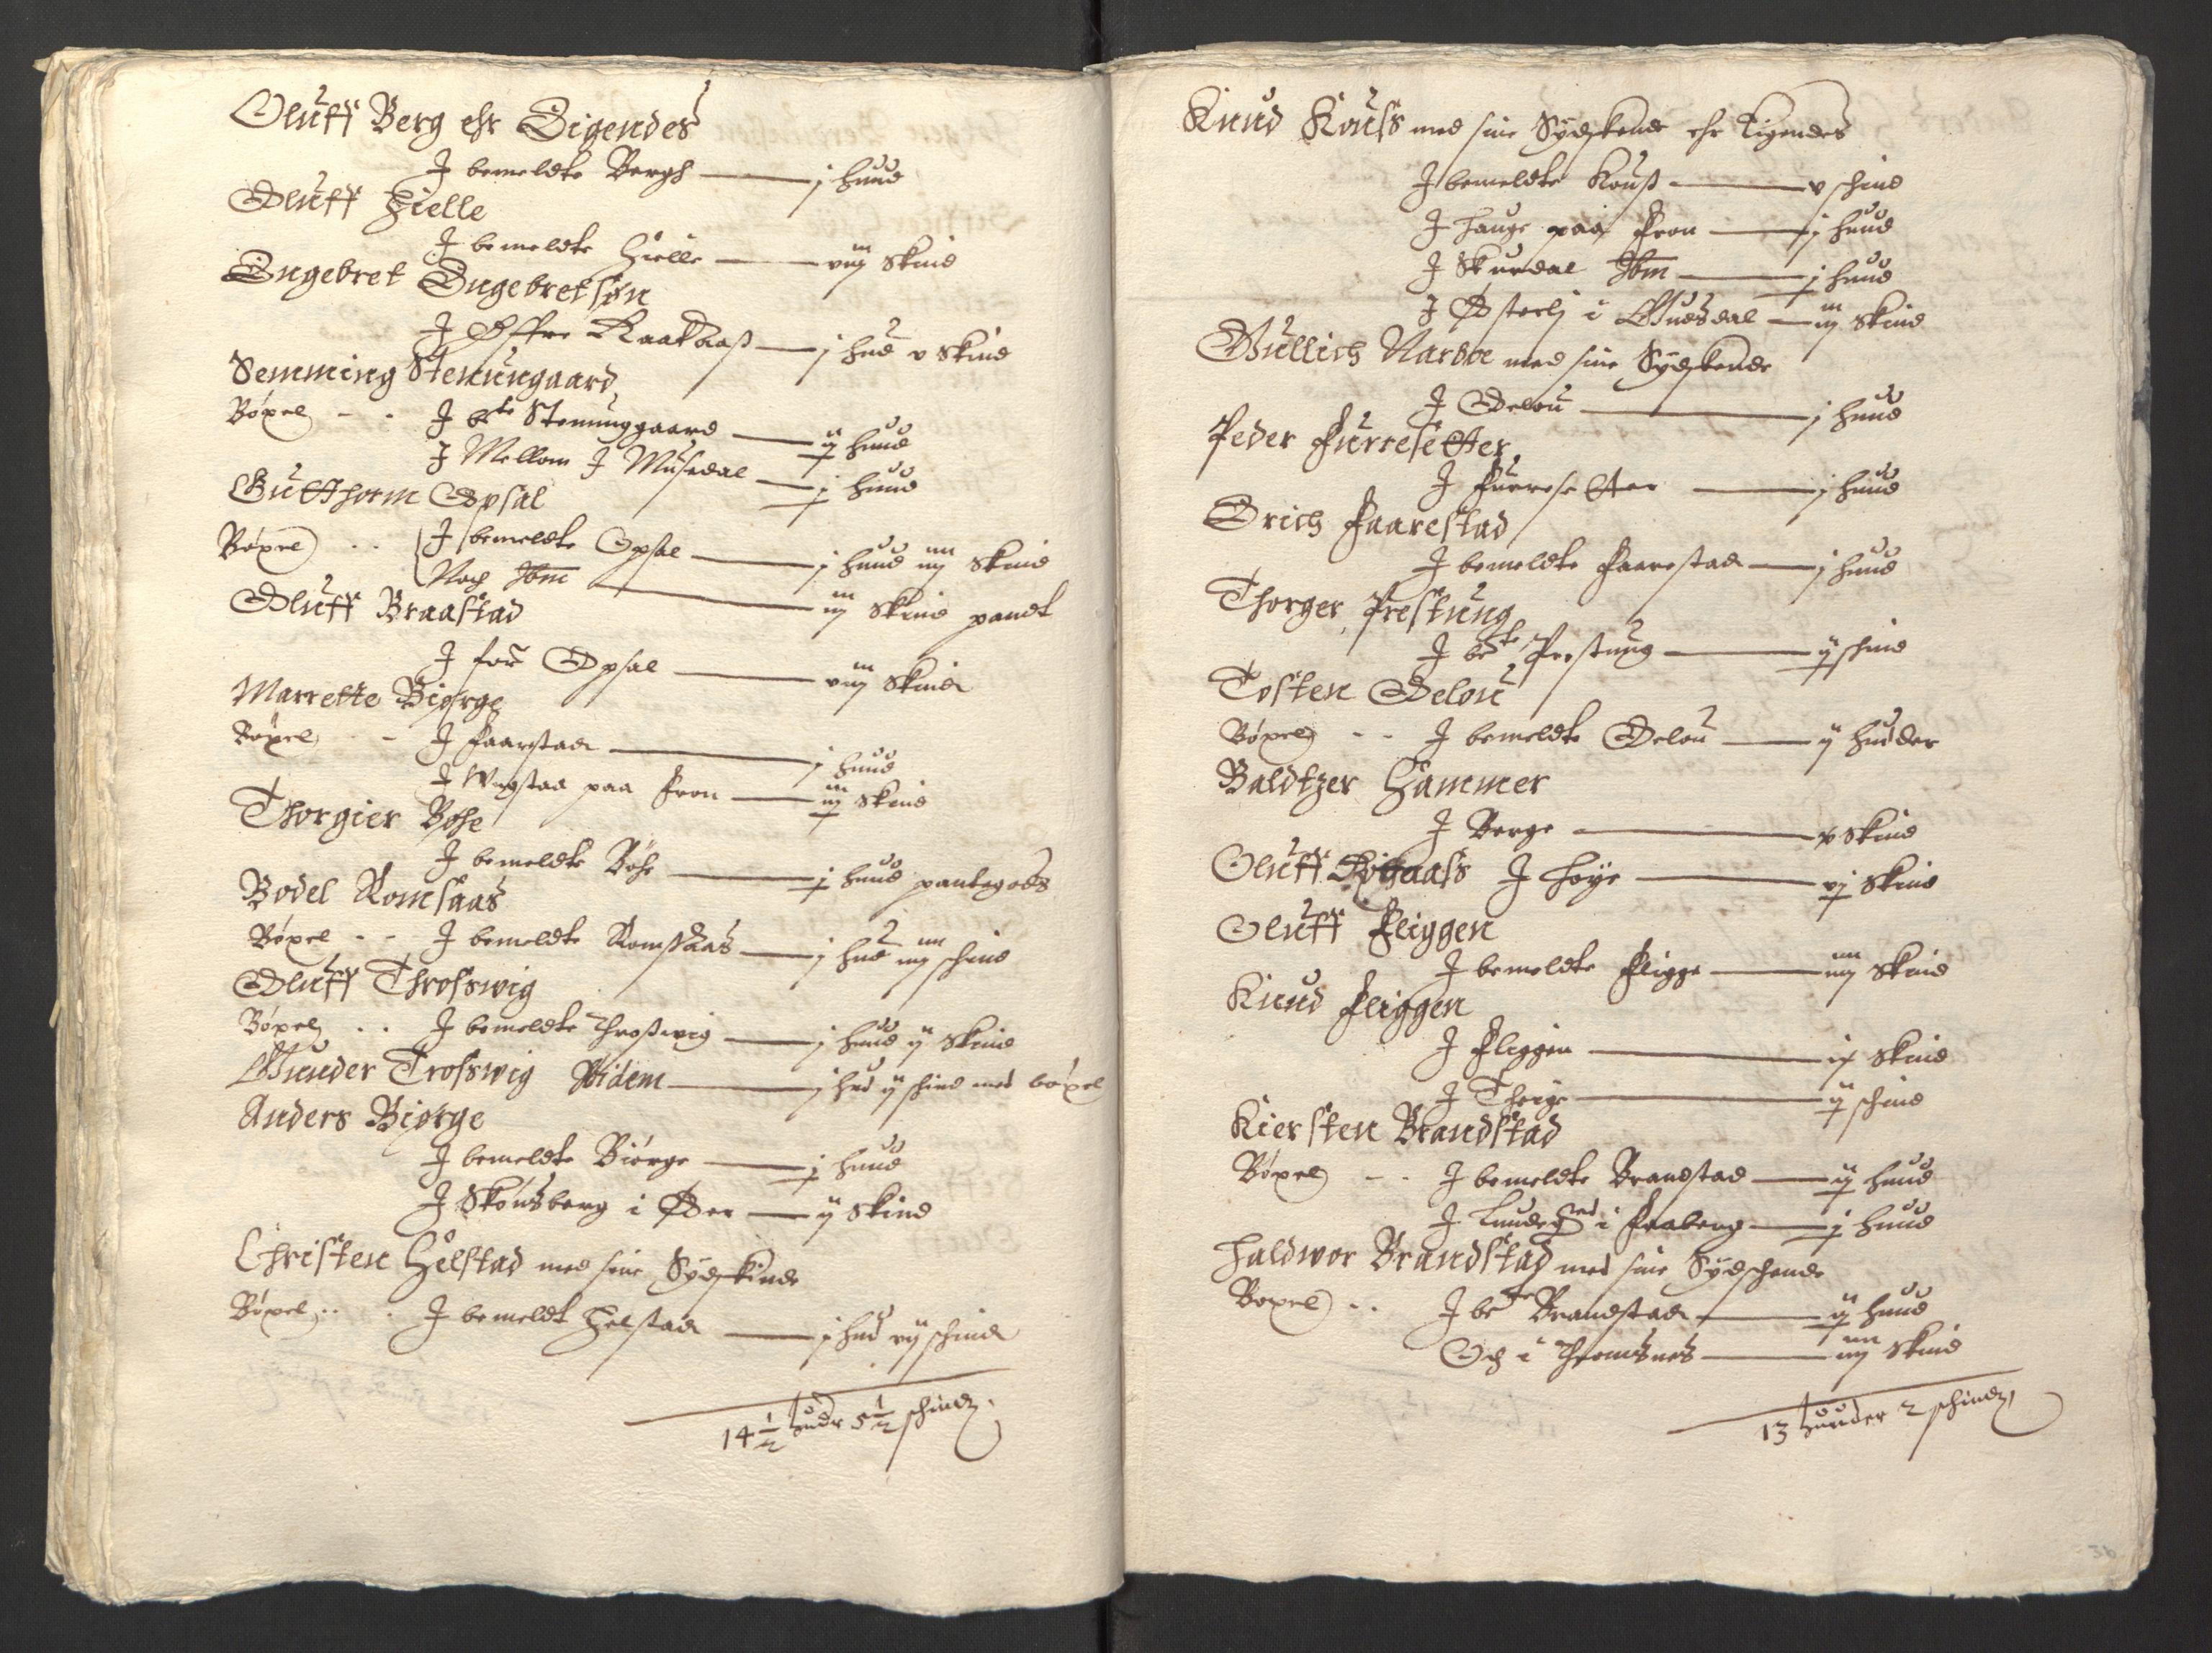 Oluff Berg ehr Eigendes
J bemeldte Bergh — j huud
Oluff Hielle
J bemeldte Hielle — viij Skind
Engebret Engebretsøn
J Øffre Raaboaß — j hud v Skind
Semming Stenungaard
Bøxel - - J bte Stenunggaard — ij huud
J Mellom J Musedal — j huud
Gutthorm Opsal
Bøxel - - J bemeldte Opsal — j huud iiij Skind
Noch Jbm — iij Skind pandt
Oluff Braastad
J for Opsal — viij Skind
Marrette Biørge
Bøxel - - J Faarstad — j huud
J Wigstaa paa Fron — iij Skind
Thorgier Bøhe
J bemeldte Bøhe — j huud pantegods
Bodel Romsaas
Bøxel - - J bemeldte Romsaas — j hud iiij schind
Oluff Throswig
Bøxel - - J bemeldte Throswig — j huud ij Skind
Gunder Troswig Ibidem — j hud ij schind med bøxel
Anders Biørge
J bemeldte Biørge — j huud
J Skønsberg i Øer — ij Skind
Christen Helstad med sine Sydskinde
Bøxel - - J bemeldt Helstad — j hud vij schind
14 1/2 huder 5 1/2 schind
Knud Kouss med sine Sydskende ehr Eigendes
J bemeldte Kouß — v schind
J Hauge paa Fron — j huud
J Skurdal Jbm — j huud
J Østerlj i Gudsdal — iij Skind
Gullich Narboe med sine Sydskende
J Delou — j huud
Peder Furresetter
J Furresetter — j huud
Erich Faarestad
J bemeldte Faarestad — j huud
Thorger Prestung
J bete Prestung — ij schind
Tosten Delou
Bøxel - - J bemeldte Delou — ij hudder
Baldtzer Hammer
J Berge — v Skind
Oluff J Høye — vj Skind
Oluff Fliggen
J bemeldte Fligge — iiij Skind
Knud Fliggen
J Fliggen — ix Skind
J Thoige — ij schind
Kiersten Brandstad
Bøxel - - J bemeldte Brandstad — ij huud
J Lundegrd i Faaberg — j huud
Haldwor Brandstad med sine Sydschende
Boxel - - J bete Brandstad — ij huud
Och i Thromsnes — iiij Skind
13 huuder 2 schind
36